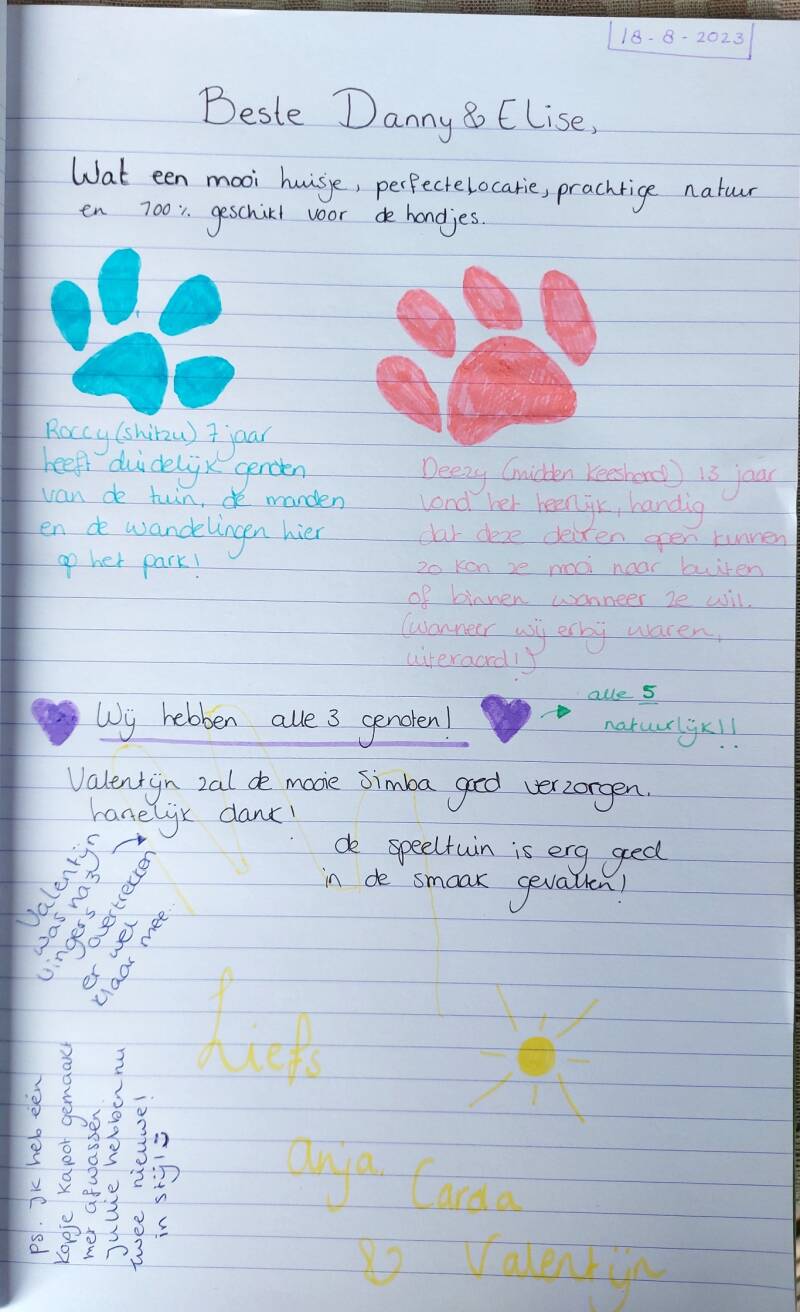 18-8-2023
Beste Danny & Elise,
Wat een mooi huisje, perfecte locatie, prachtige natuur
en 100% geschikt voor de hondjes.
Roccy (shitzu) 7 jaar
heeft duidelijk genoten
van de tuin, de manden
en de wandelingen hier
op het park!
Deezy (midden keeshond) 13 jaar
vond het heerlijk, handig
dat deze deuren open kunnen
zo kon ze mooi naar buiten
of binnen wanneer ze wil.
(wanneer wij erbij waren,
uiteraard!)
Wij hebben alle 3 genoten!
alle 5
natuurlijk!!
Valentijn zal de mooie Simba goed verzorgen.
hartelijk dank!
de speeltuin is erg goed
in de smaak gevallen!
Valentijn
was
vingers na zijn
overtrekken
er wel
klaar mee..
Liefs
Anja, Carda
& Valentijn
PS. Ik heb één
kopje kapot gemaakt
met afwassen.
Jullie hebben nu
twee nieuwe!
in stijl